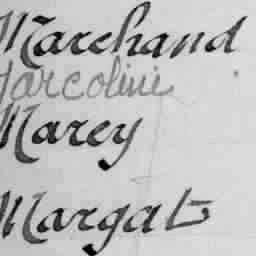 Marchand
Marcoline
Marey
Margat